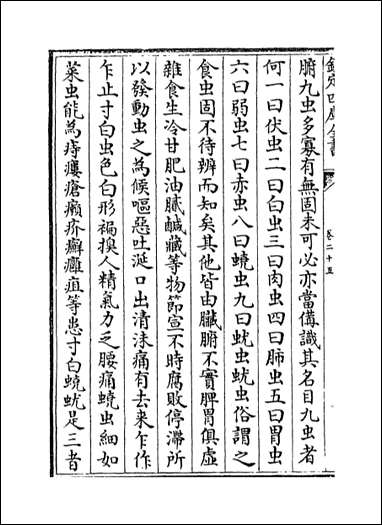 欽定四庫全書
卷二十五
腑九虫多寡有無固未可必亦當備識其名目九虫者
何一曰伏虫二曰白虫三曰肉虫四曰肺虫五曰胃虫
六曰弱虫七曰赤虫八曰蟯虫九曰蚘虫蚘虫俗謂之
食虫固不待辨而知矣其他皆由臓腑不實脾胃俱虛
雜食生冷甘肥油膩鹹藏等物節宣不時腐敗停滯所
以發動虫之為候嘔惡吐涎口出清沫痛有去来乍作
乍止寸白虫色白形褊損人精氣力乏腰痛蟯虫細如
菜虫能為痔瘻瘡癩疥癬癰疽等患寸白蟯蚘是三者